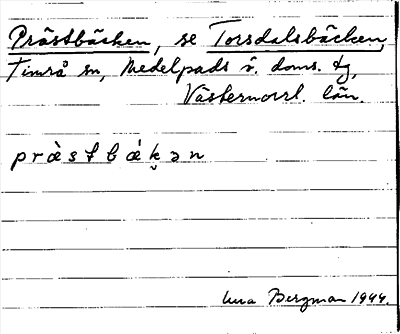 Prästbäcken, se Torsdalsbäcken,
Timrå sn, Medelpads ö. doms. tg,
Västernorrl. län.
pràstbákən
Bergman 1944.